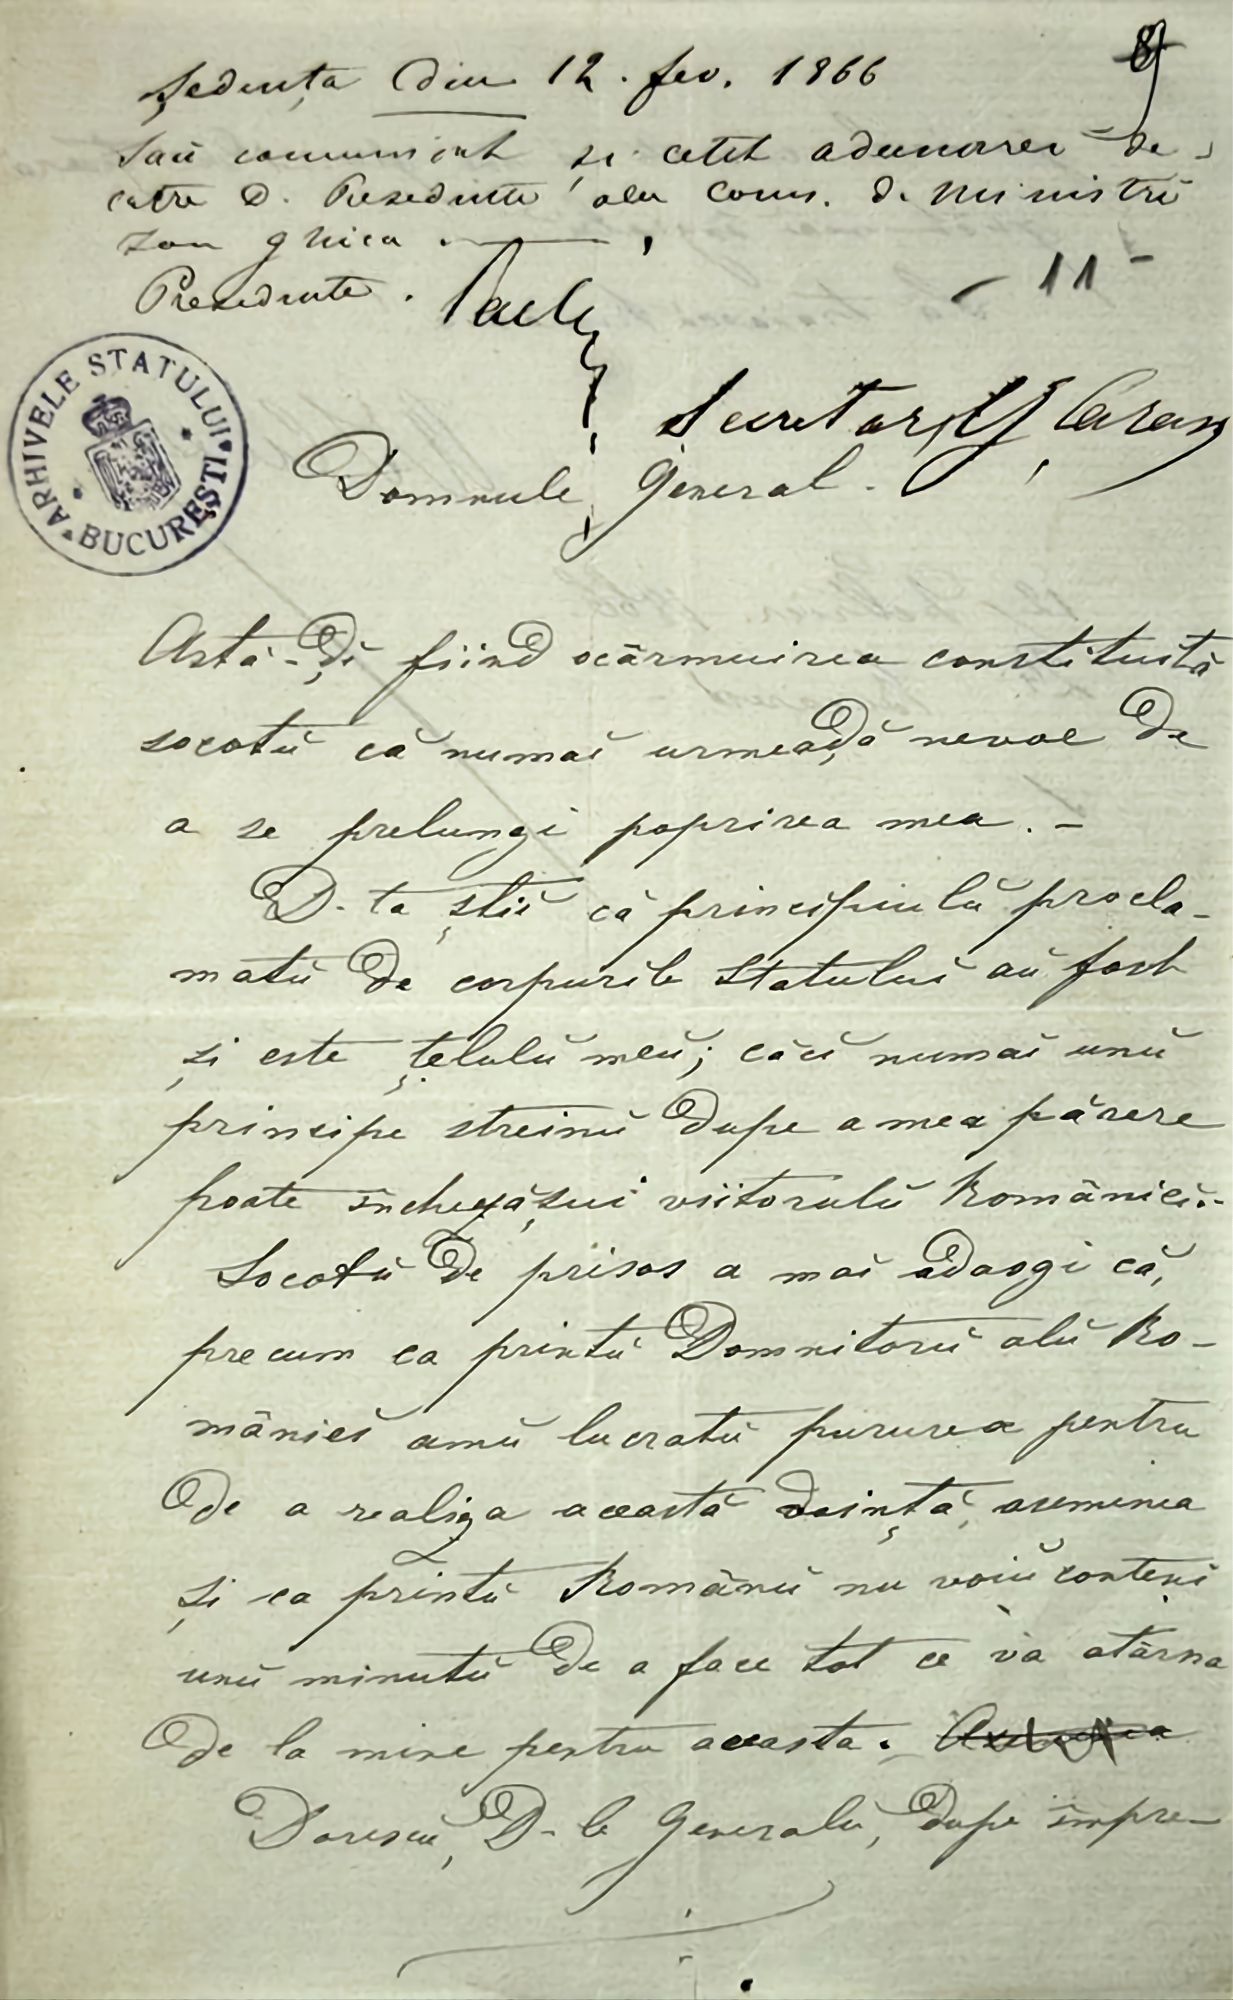 Ședința din 12. fev. 1866
9
Sau comunicat și cetit adunărei de
catre D. Presedinte alu Cons. de Ministri
Ion ghica.
Presedinte.
- 11 -
Secretar
ARHIVELE STATULUI
BUCUREȘTI
Domnule General.
Astă-ḑĭ fiind ocârmuirea constituită
socotŭ că numaĭ urmeaḑă nevoe de
a se prelungi poprirea mea. -
D-ta știĭ că principiulŭ procla-
matŭ de corpurile Statuluĭ aŭ fost
și este țelulŭ meŭ; căcĭ numaĭ unŭ
principe streinŭ dupe a mea părere
poate închezășui viitorulŭ Românieĭ.-
Socotŭ de prisos a maĭ adaogi că,
precum ca printŭ Domnitorŭ alŭ Ro-
mânieĭ amŭ lucratŭ pururea pentru
de a realiza această doință, asemenea
și ca printŭ Românŭ nu voiŭ conteni
unŭ minutŭ de a face tot ce va atârna
de la mine pentru aceasta.
Dorescŭ, D-le Generalŭ, dupe împre-